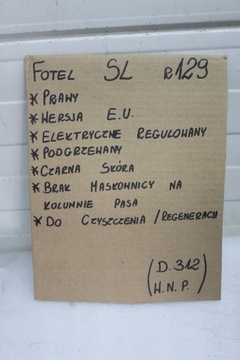 FOTEL SL R129
* PRAWY
* WERSJA E.U.
* ELEKTRYCZNE REGULOWANY
* PODGRZEWANY
* CZARNA SKÓRA
* BRAK MASKOWNICY NA
KOLUNNIE PASA
* DO CZYSZCZENIA / REGENERACJI
(D. 312)
(W.N.P.)